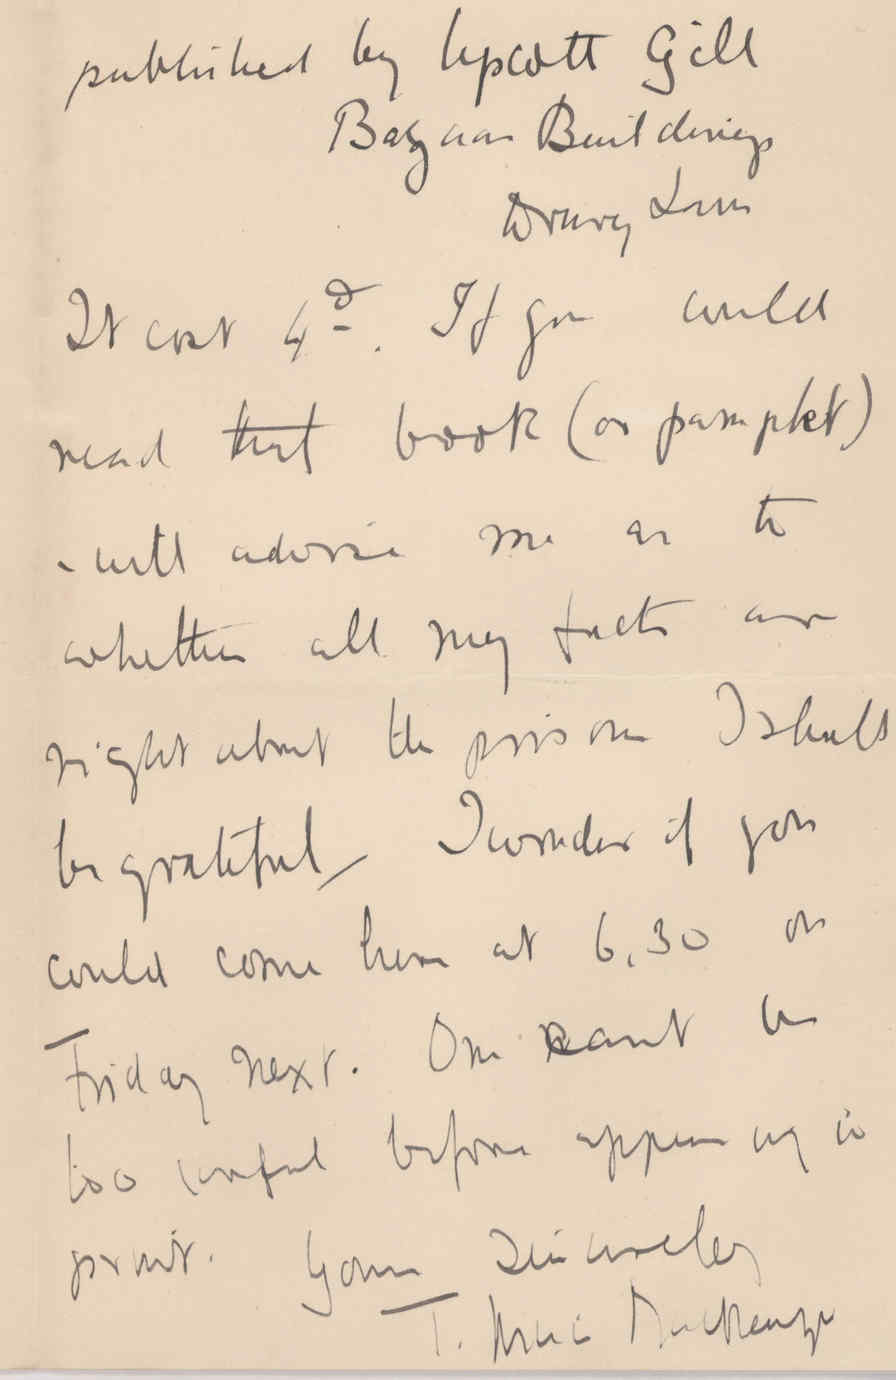 published by Upcott Gill
Bazaar Buildings
Drury Lane
It cost 4d. If you could
read that book (or pamphlet)
& will advise me as to
whether all my facts are
right about the prison I shall
be grateful, I wonder if you
could come here at 6.30 on
Friday next. One can't be
too careful before appearing in
print. Yours Sincerely
T. Mackenzie